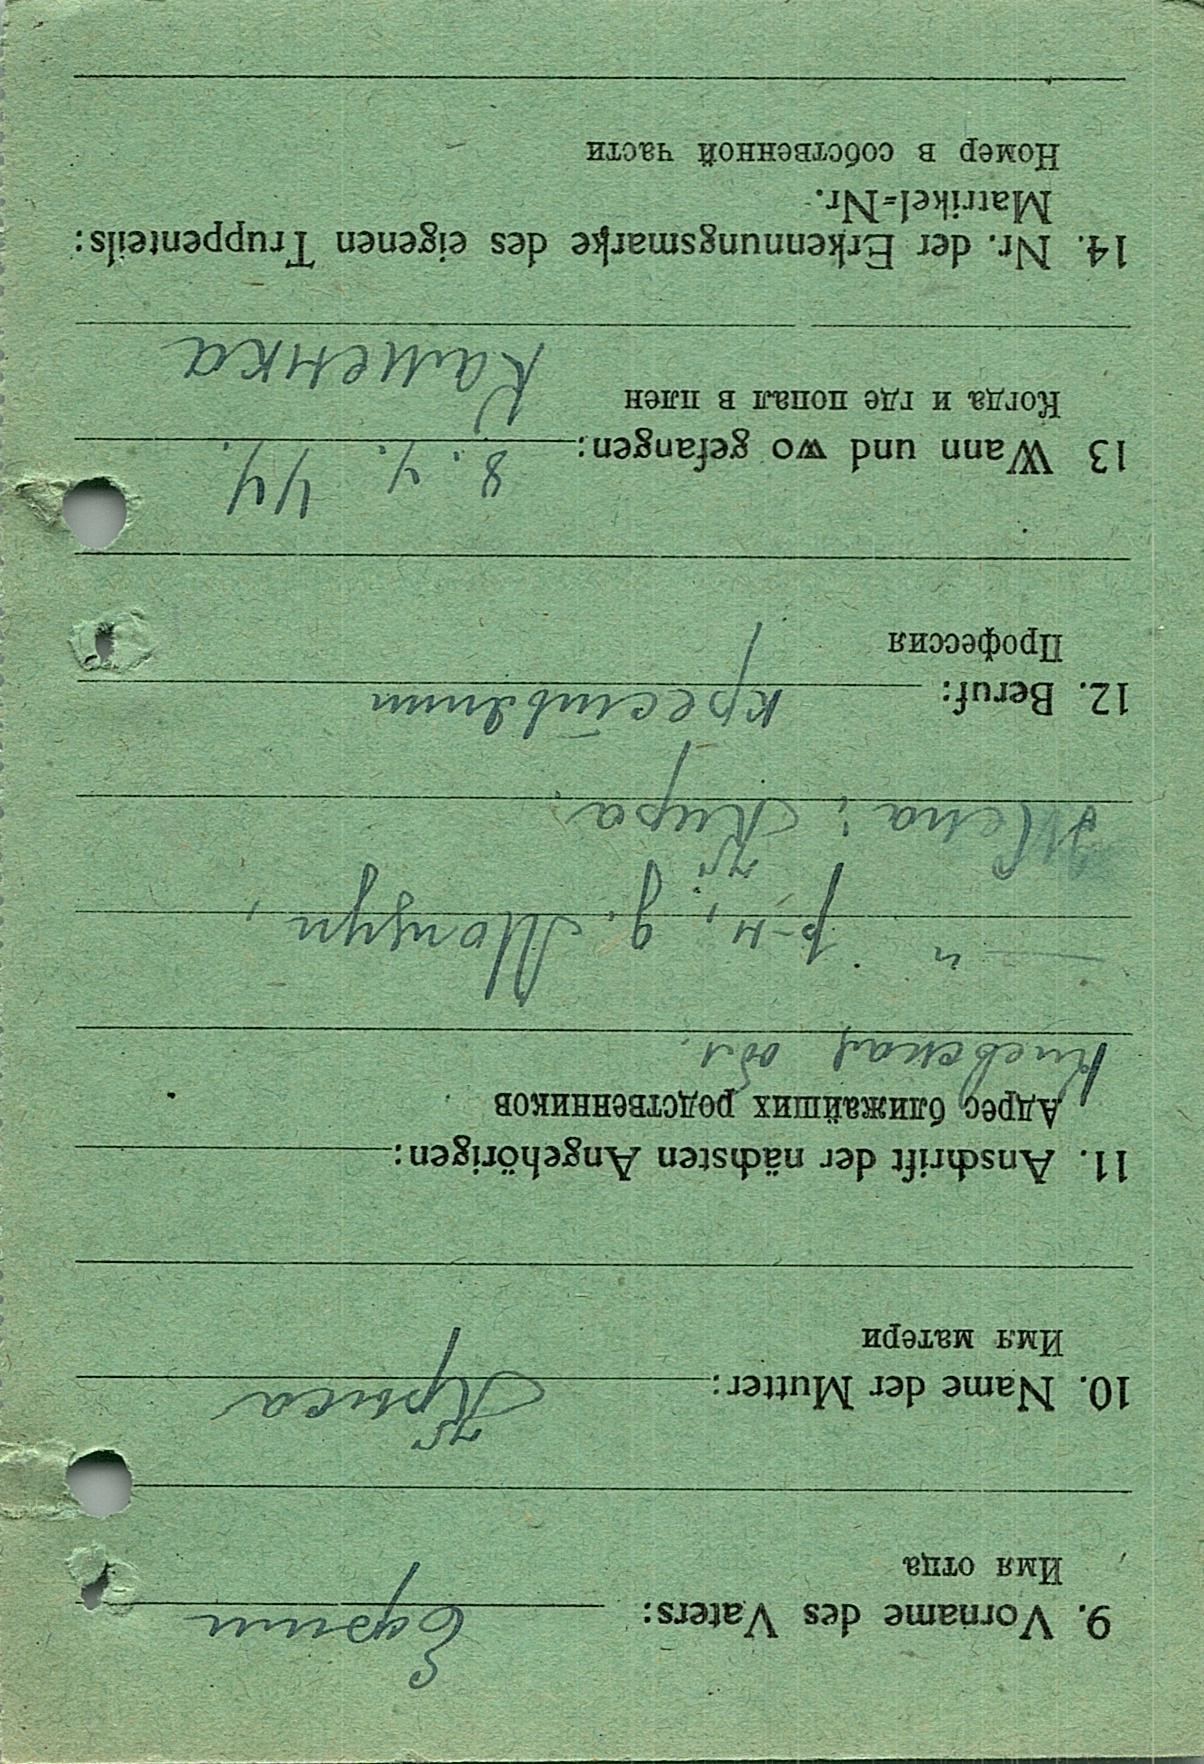 9. Vorname des Vaters: Ефим
Имя отца
10. Name der Mutter:
Имя матери
11. Anschrift der nächsten Angehörigen:
Адрес ближайших родственников
Киевская обл.
— " — р-н, д. Мощун,
Жена: Кира.
12. Beruf: крестьянин
Профессия
13 Wann und wo gefangen: 8. 4. 44.
Когда и где попал в плен
Каменка
14. Nr. der Erkennungsmarke des eigenen Truppenteils:
Matrikel=Nr.
Номер в собственной части